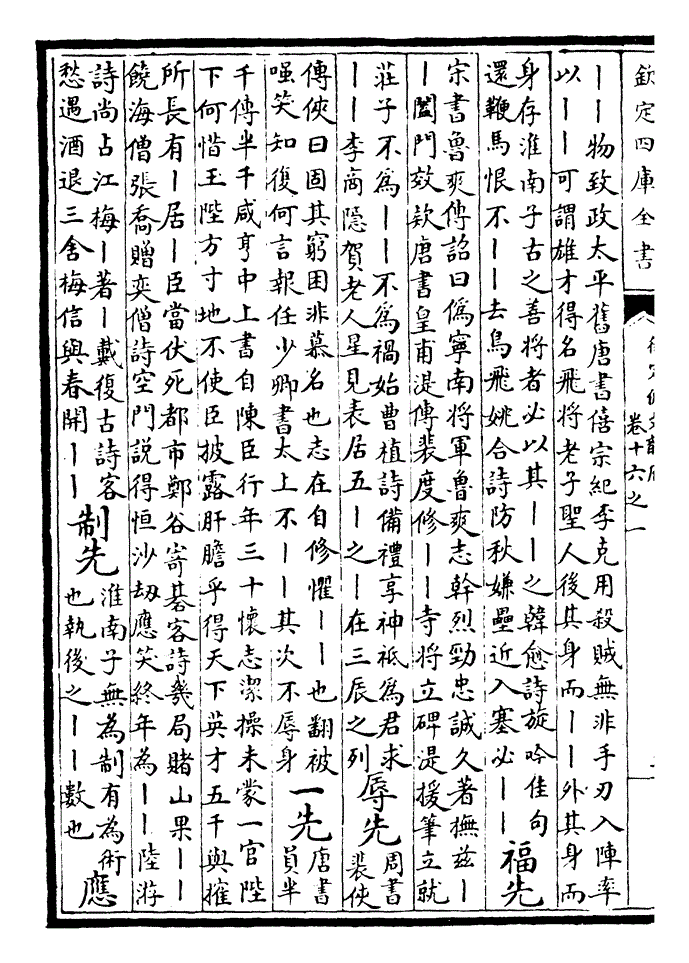 欽定四庫全書
卷十六之一
丨丨物致政太平舊唐書僖宗紀李克用殺賊無非手刃入陣率
以丨丨可謂雄才得名飛將老子聖人後其身而丨丨外其身而
身存淮南子古之善將者必以其丨丨之韓愈詩旋吟佳句
還鞭馬恨不丨丨去鳥飛姚合詩防秋嫌壘近入塞必丨丨
福先
宋書魯爽傳詔曰偽寧南將軍魯爽志幹烈勁忠誠久著撫兹丨
丨闔門效款唐書皇甫湜傳裴度修丨丨寺將立碑湜援筆立就
莊子不為丨丨不為禍始曹植詩備禮享神祗為君求
丨丨李商隱賀老人星見表居五丨之丨丨在三辰之列
辱先
周書
裴俠
傳俠曰固其窮困非慕名也志在自修懼丨丨也翻被
嗤笑知復何言報任少卿書太上不丨丨其次不辱身
一先
唐書
員半
千傳半千咸亨中上書自陳臣行年三十懷志潔操未蒙一官陛
下何惜玉陛方寸地不使臣披露肝膽乎得天下英才五千與搉
所長有丨居丨臣當伏死都市鄭谷寄碁客詩幾局賭山果丨丨
饒海僧張喬贈奕僧詩空門説得恒沙劫應笑終年為丨丨陸游
詩尚占江梅丨著丨戴復古詩客
愁遇酒退三舍梅信與春開丨丨
制先
淮南子無為制有為術
也執後之丨丨數也
應